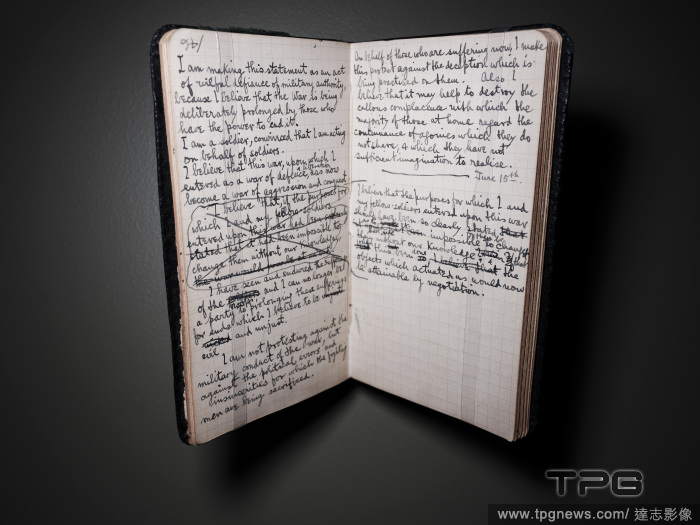 I am making this statement as an act
of wilful defiance of military authority,
because I believe that the war is being
deliberately prolonged by those who
have the power to end it.
I am a soldier, convinced that I am acting
on behalf of soldiers.
I believe that this war, upon which I
entered as a war of defence, has now
become a war of aggression and conquest
I believe that the purposes for
which I and my fellow soldiers
entered upon this war had been
stated that it had been impossible to
change them without our knowledge
I have seen and endured the
of the troops and I can no longer be
a party to prolonging these sufferings
for ends which I believe to be
evil and unjust.
I am not protesting against the
military conduct of the war, but
against the political errors and
insincerities for which the fighting
men are being sacrificed.
On behalf of those who are suffering now, I make
this protest against the deception which is
being practised on them. Also I
believe that it may help to destroy the
callous complacence with which the
majority of those at home regard the
continuance of agonies which they do
not share, & which they have not
sufficient imagination to realise.
June 15th.
I believe that the purposes for which I and
my fellow soldiers entered upon this war
should have been so clearly stated
impossible to change
without our knowledge
objects which actuated us would now
be attainable by negotiation.
TPG
www.tpgnews.com/ 達志影像